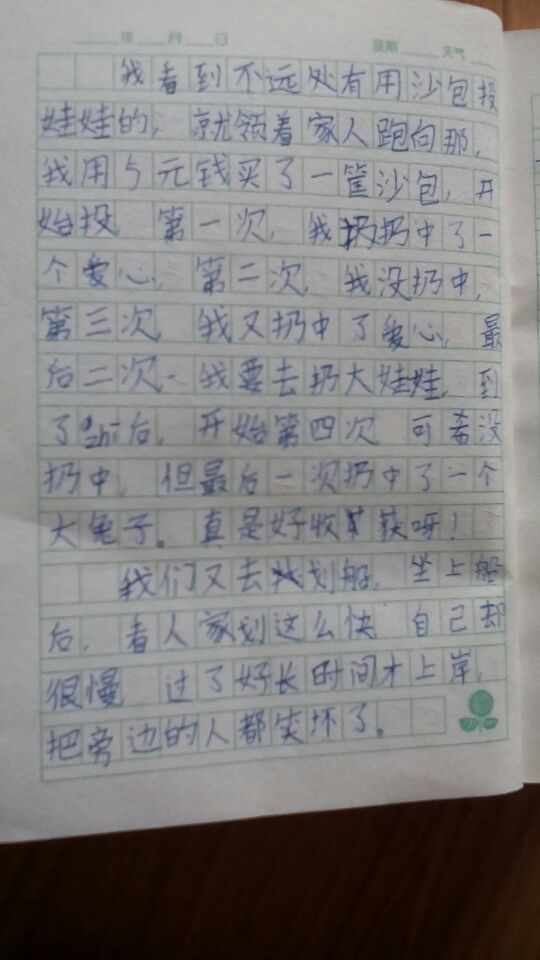 年 月 日 星期 天气
我看到不远处有用沙包投
娃娃的，就领着家人跑向那，
我用5元钱买了一筐沙包，开
始投，第一次，我扔中了一
个爱心，第二次，我没扔中，
第三次，我又扔中了爱心，最
后二次，我要去扔大娃娃，到
了zhi后，开始第四次，可希没
扔中，但最后一次扔中了一个
大兔子。真是好收获呀！
我们又去划船，坐上船
后，看人家划这么快，自己却
很慢，过了好长时间才上岸，
把旁边的人都笑坏了。